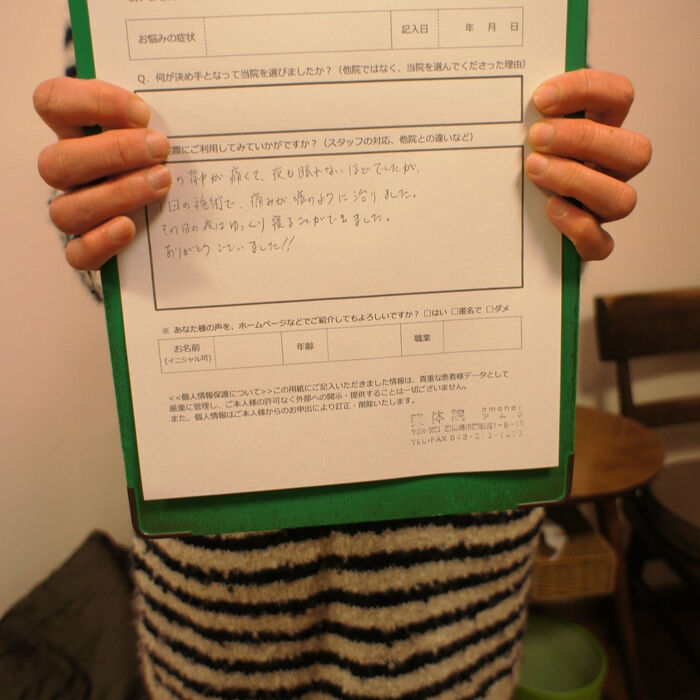 お悩みの症状 記入日 年 月 日
Q. 何が決め手となって当院を選びましたか？（他院ではなく、当院を選んでくださった理由）
際にご利用してみていかがですか？（スタッフの対応、他院との違いなど）
の背中が痛くて、夜も眠れないほどでしたが、
1回の施術で、痛みが嘘のように治りました。
その日の夜はゆっくり寝ることができました。
ありがとうございました!!
※ あなた様の声を、ホームページなどでご紹介してもよろしいですか？ □はい □匿名で □ダメ
お名前 年齢 職業
(イニシャル可)
<<個人情報保護について>>この用紙にご記入いただきました情報は、貴重な患者様データとして
厳重に管理し、ご本人様の許可なく外部への開示・提供することは一切ございません。
また、個人情報はご本人様からのお申出により訂正・削除いたします。
体院
TEL・FAX 043-